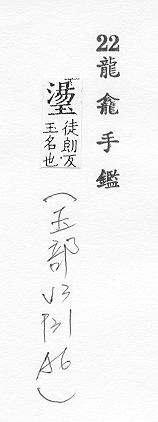 22龍龕手鑑
璗
徒朗反
玉名也
(玉部 V3 P31 A6)